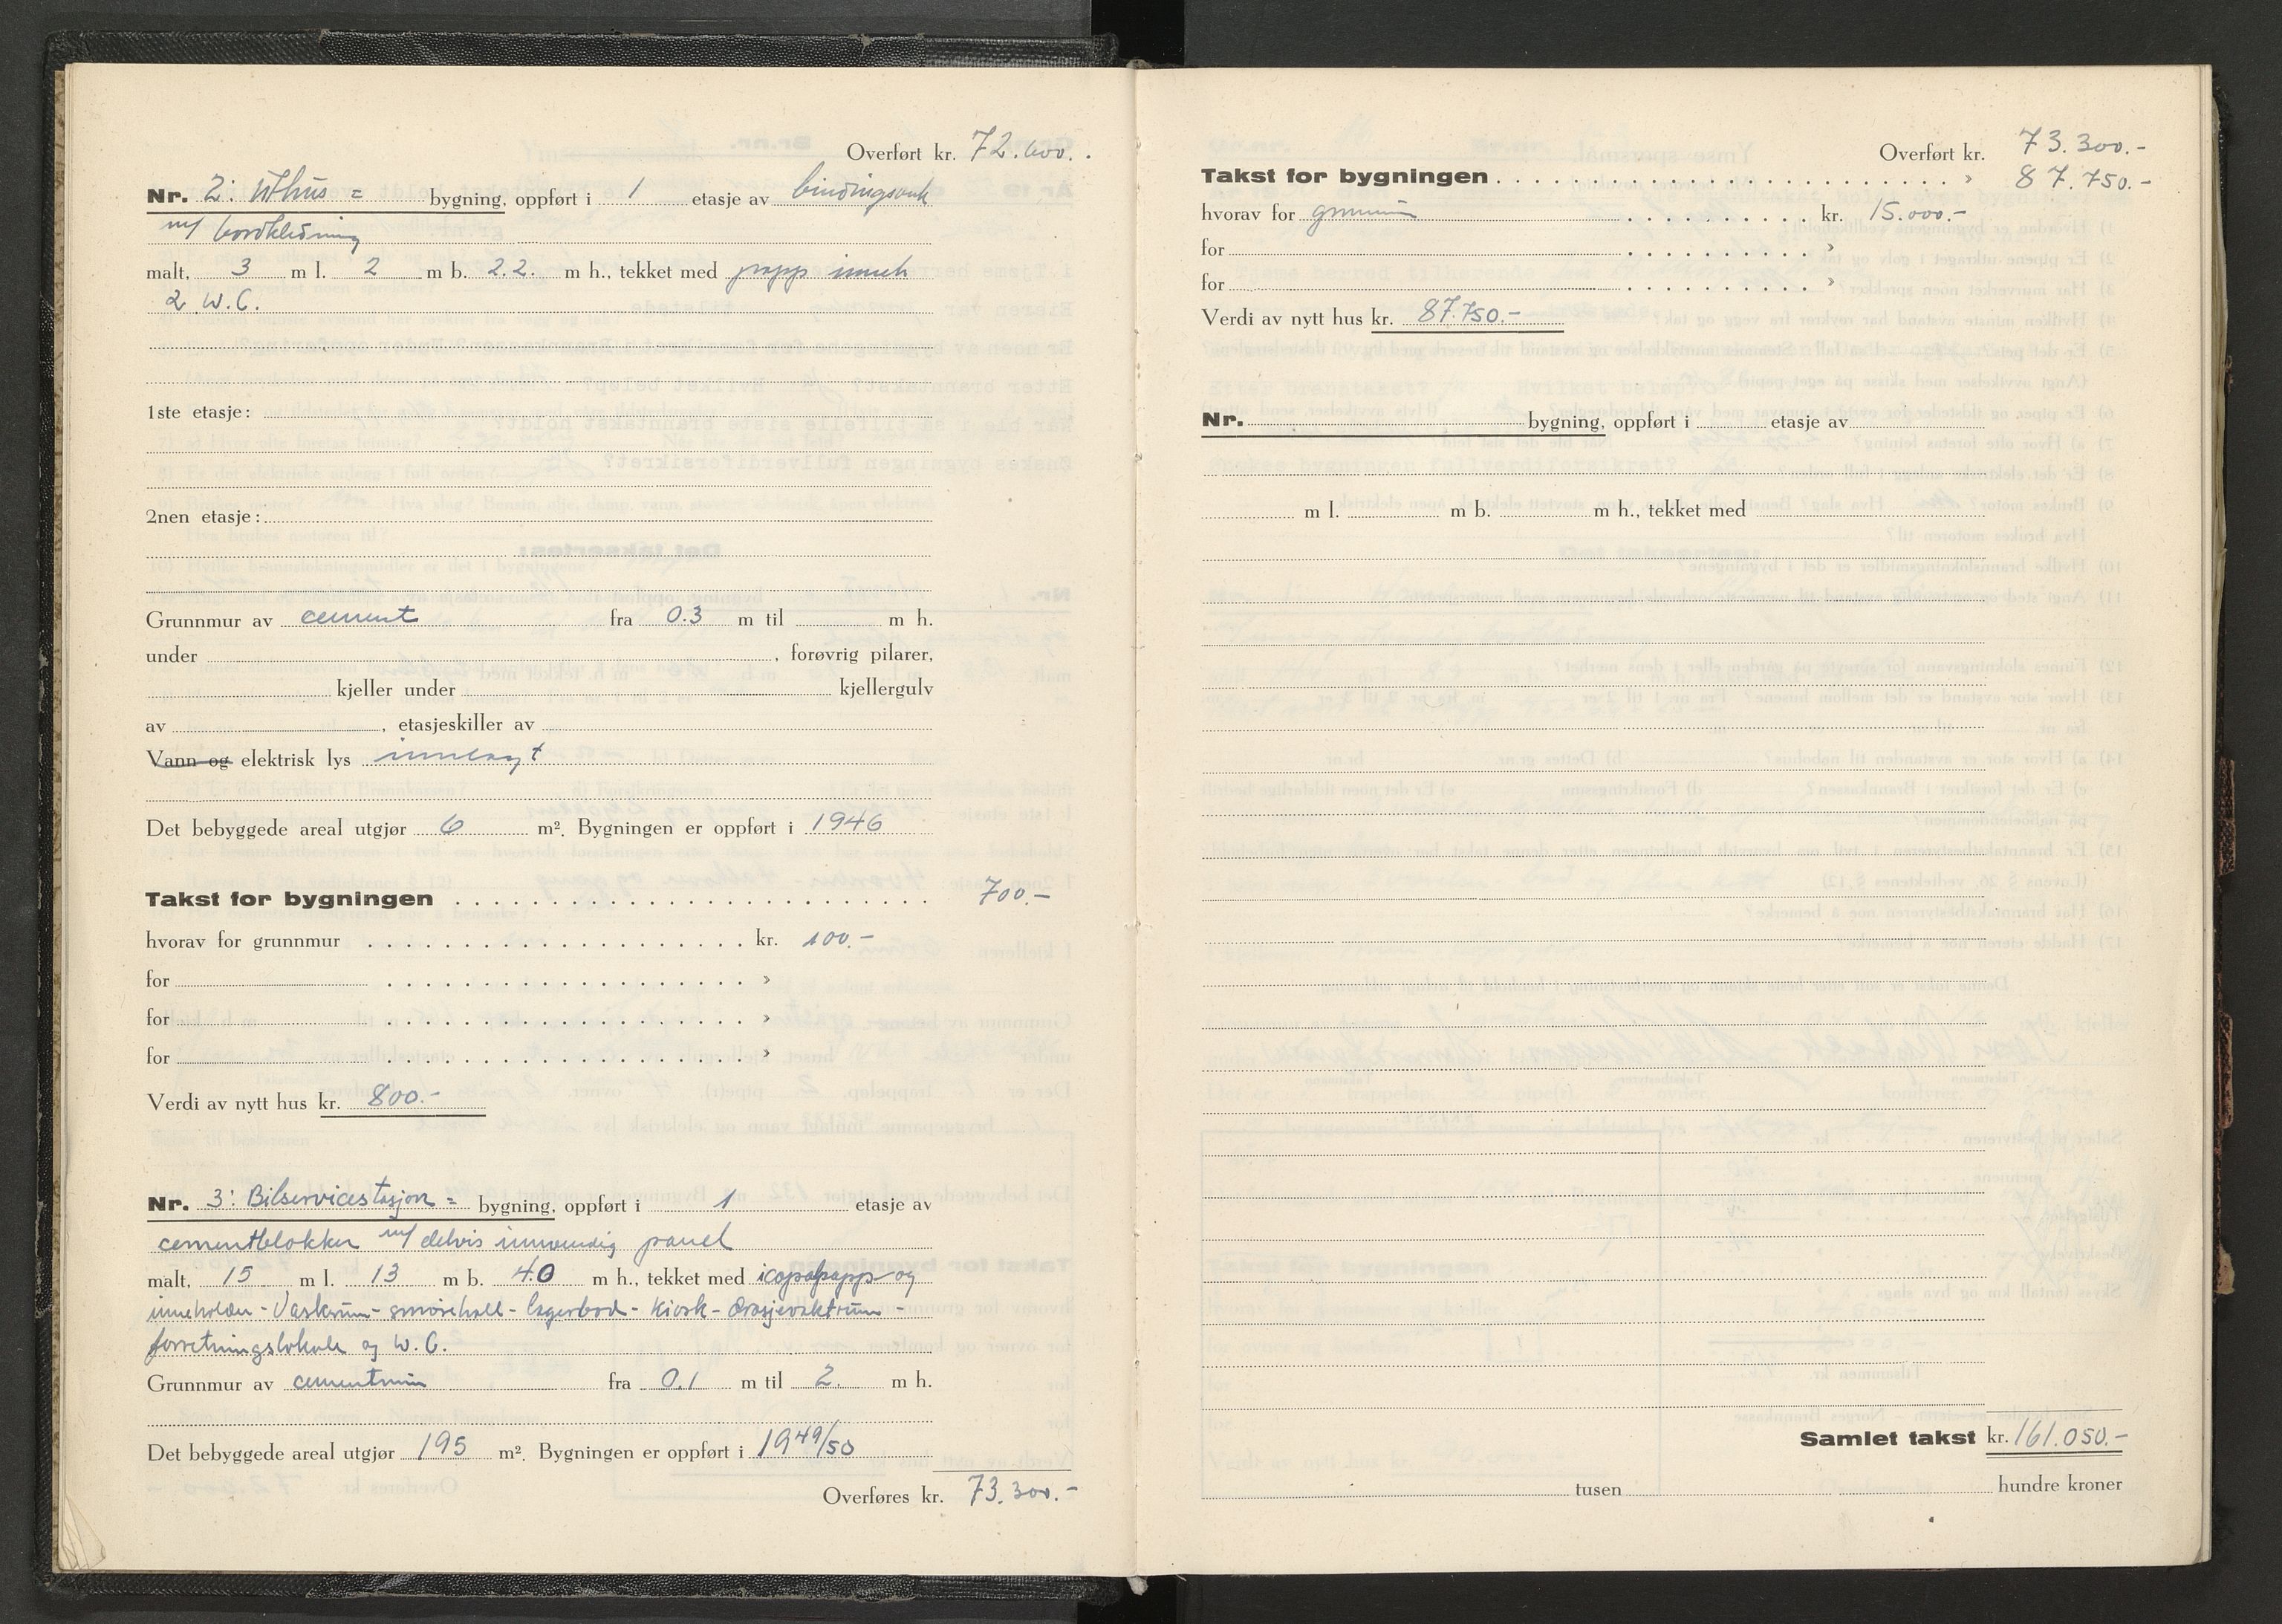 Overført kr. 72.600.-
Nr. 2: Uthus = bygning, oppført i 1 etasje av bindingsverk
m/ bordkledning
malt, 3 m l. 2 m b. 2.2. m h., tekket med papp inneh
2 W.C.
1ste etasje:
2nen etasje:
Grunnmur av cement fra 0.3 m til m h.
under , forøvrig pilarer,
kjeller under kjellergulv
av , etasjeskiller av
Vann og elektrisk lys innlagt
Det bebyggede areal utgjør 6 m². Bygningen er oppført i 1946
Takst for bygningen 700.-
hvorav for grunnmur kr. 100.-
for »
for »
for »
Verdi av nytt hus kr. 800.-
Nr. 3: Bilservicestasjon = bygning, oppført i 1 etasje av
cementblokker m/ delvis innvendig panel
malt, 15 m l. 13 m b. 4.0 m h., tekket med icopalpapp og
inneholder - Vaskerum - smørehall - lagerbod - kiosk - drosjevaktrum -
forretningslokale og W.C.
Grunnmur av cementmur fra 0.1 m til 2. m h.
Det bebyggede areal utgjør 195 m². Bygningen er oppført i 1949/50
Overføres kr. 73.300.-
Overført kr. 73.300.-
Takst for bygningen » 87.750.-
hvorav for grunnmur kr. 15.000.-
for »
for »
Verdi av nytt hus kr. 87.750.-
Nr. bygning, oppført i etasje av
m l. m b. m h., tekket med
Samlet takst kr. 161.050.-
tusen hundre kroner